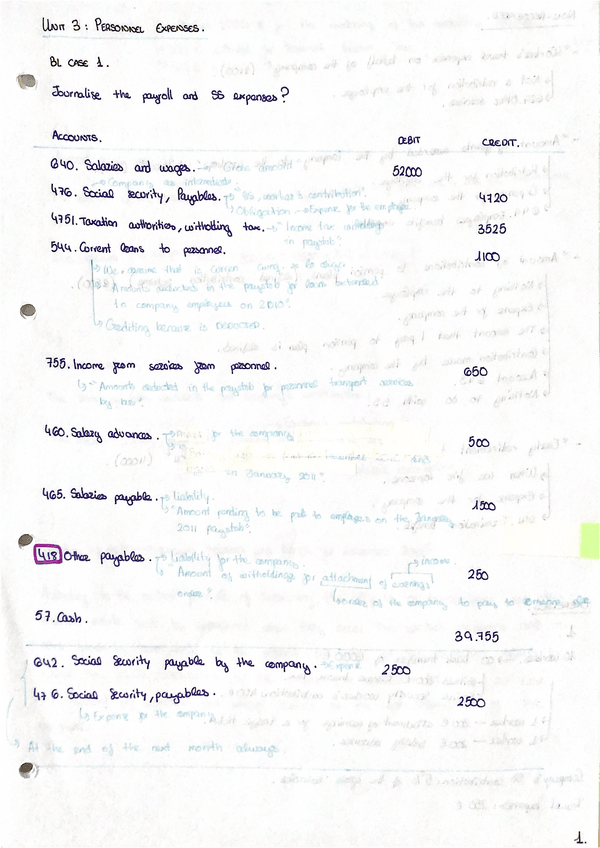 UNIT 3: PERSONNEL EXPENSES.
BL CASE 1.
Journalise the payroll and SS expenses?
ACCOUNTS. DEBIT CREDIT.
640. Salaries and wages. → Gross amount 52000
→ Company as intermediate.
476. Social Security, Payables. → "SS, worker's contribution". 4720
→ Obligation → Expense for the employee
4751. Taxation authorities, witholding tax. → "Income tax 3525
in paystub".
544. Corrent loans to personnel. 1100
→ We assume that is
→ "Amounts deducted in the paystub for loan
to company employees on 2010".
→ Crediting because is DEDUCTED.
755. Income from services from personnel. 650
→ "Amounts deducted in the paystub for personnel transport services
by bus".
460. Salary advances. for the company 500
in January 2011".
465. Salaries payable. → Liability. 1500
→ "Amount pending to be paid to employees on the January
2011 paystub".
418 Other payables. → Liability for the company. → income.
→ Amount of witholdings for attachment of earnings 250
order". → order of the company to pay to someone else
57. Cash. 39.755
642. Social Security payable by the company. → Expense 2500
476. Social Security, payables. 2500
→ Expense for the company
→ At the end of the next month always.
1.